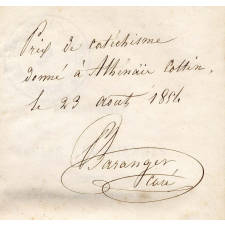 Prix de catéchisme
donné à Athénaïs Cottin,
le 23 août 1854
Baranger
curé